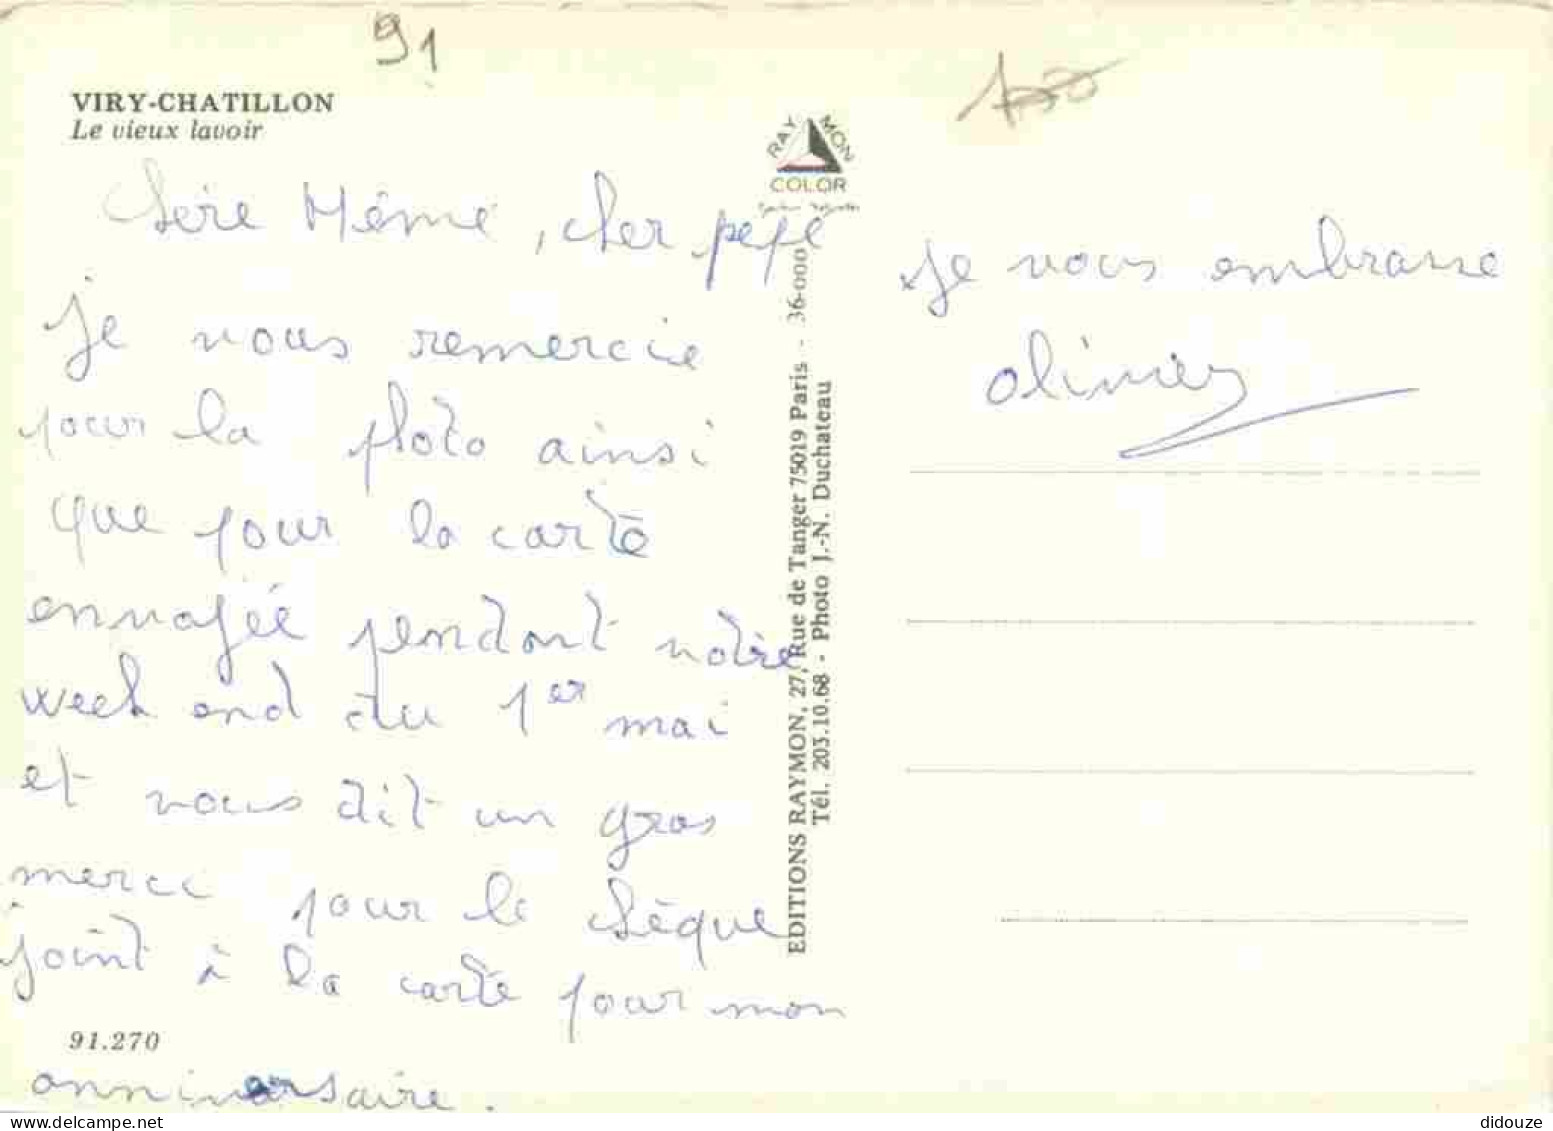 91
VIRY-CHATILLON
Le vieux lavoir
RAYMON
COLOR
chère Mémé, cher pépé
je vous remercie
pour la photo ainsi
que pour la carte
envoyée pendant notre
week end du 1er mai
et vous dit un gros
merci pour le chèque
joint à la carte pour mon
anniversaire.
91.270
EDITIONS RAYMON, 27, Rue de Tanger 75019 Paris - 36-000
Tél. 203.10.68 - Photo J.-N. Duchateau
je vous embrasse
olivier
didouze